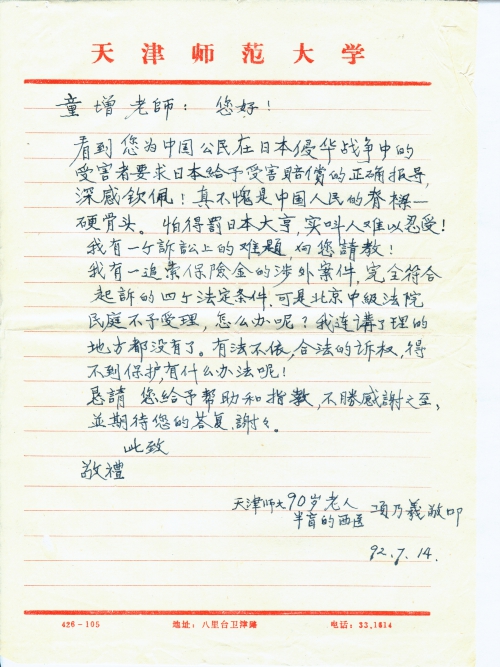 天津师范大学
童增老師：您好！
看到您为中国公民在日本侵华战争中的
受害者要求日本给予受害赔偿的正确报导，
深感钦佩！真不愧是中国人民的脊樑—
硬骨头。怕得罪日本大亨，实叫人难以忍受！
我有一个訴訟上的难題，向您請教！
我有一追索保險金的涉外案件，完全符合
起訴的四个法定条件，可是北京中級法院
民庭不予受理，怎么办呢？我连講了理的
地方都没有了。有法不依，合法的诉权，得
不到保护，有什么办法呢！
恳請 您给予帮助和指教，不勝感謝之至，
並期待您的答复，謝々。
此致
敬禮
天津师大90岁老人
半盲的西医 項乃羲敬叩
92.7.14.
426-105 地址：八里台卫津路 电话：33.1614